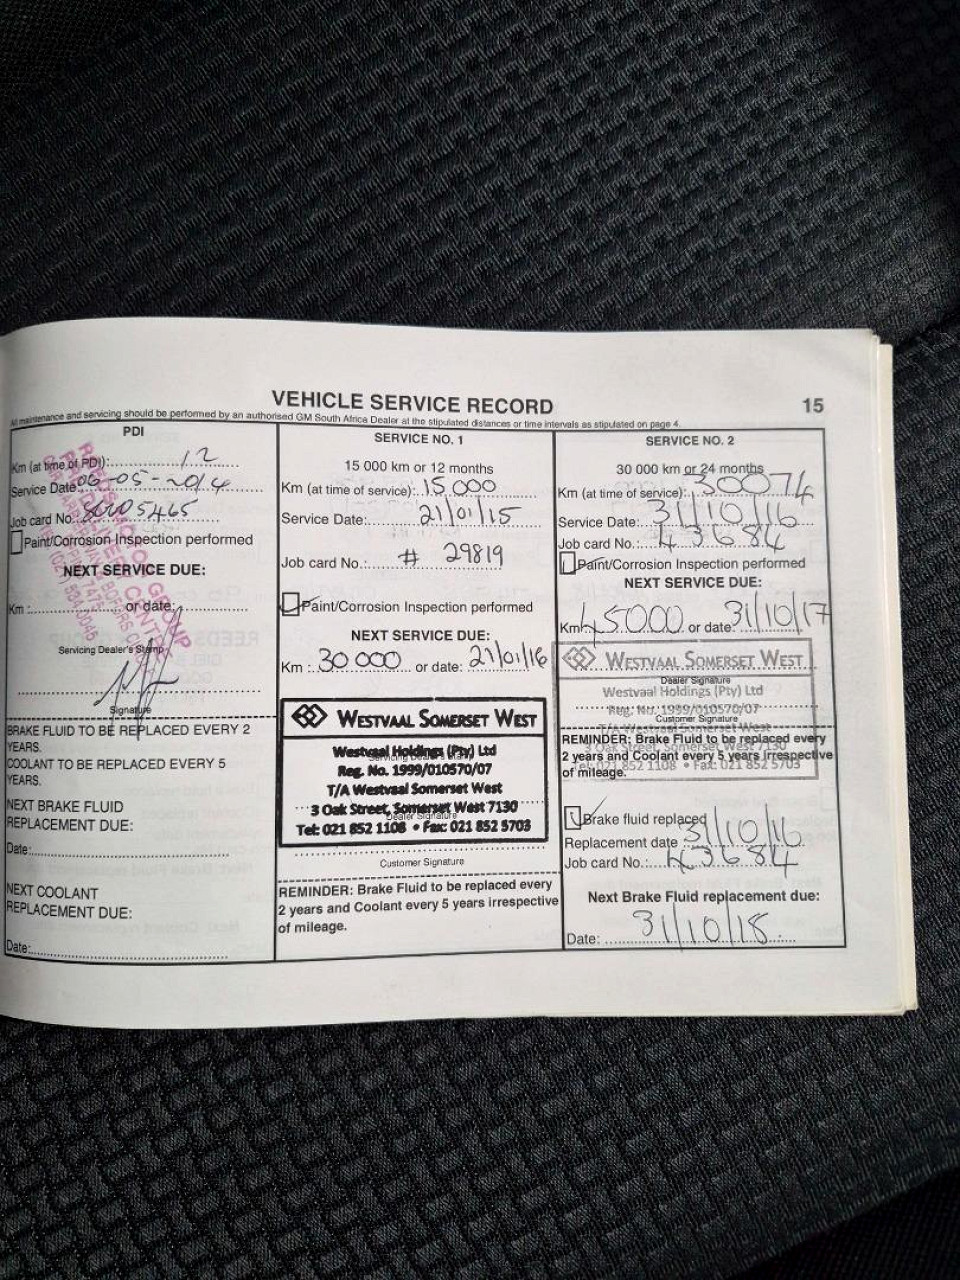 VEHICLE SERVICE RECORD
15
All maintenance and servicing should be performed by an authorised GM South Africa Dealer at the stipulated distances or time intervals as stipulated on page 4.
PDI
Km (at time of PDI): 12
Service Date: 06-05-2014
Job card No.: 30005465
Paint/Corrosion Inspection performed
NEXT SERVICE DUE:
Km : or date:
Servicing Dealer's Stamp
Signature
BRAKE FLUID TO BE REPLACED EVERY 2
YEARS.
COOLANT TO BE REPLACED EVERY 5
YEARS.
NEXT BRAKE FLUID
REPLACEMENT DUE:
Date:
NEXT COOLANT
REPLACEMENT DUE:
Date:
SERVICE NO. 1
15 000 km or 12 months
Km (at time of service): 15 000
Service Date: 21/01/15
Job card No.: # 29819
Paint/Corrosion Inspection performed
NEXT SERVICE DUE:
Km : 30 000 or date: 21/01/16
WESTVAAL SOMERSET WEST
Westvaal Holdings (Pty) Ltd
Reg. No. 1999/010570/07
T/A Westvaal Somerset West
3 Oak Street, Somerset West 7130
Dealer Signature
Tel: 021 852 1108 • Fax: 021 852 5703
Customer Signature
REMINDER: Brake Fluid to be replaced every
2 years and Coolant every 5 years irrespective
of mileage.
SERVICE NO. 2
30 000 km or 24 months
Km (at time of service): 30074
Service Date: 31/10/16
Job card No.: 43684
Paint/Corrosion Inspection performed
NEXT SERVICE DUE:
Km: 45000 or date: 31/10/17
WESTVAAL SOMERSET WEST
Dealer Signature
Westvaal Holdings (Pty) Ltd
Reg. No. 1999/010570/07
Customer Signature
T/A Westvaal Somerset West
REMINDER: Brake Fluid to be replaced every
3 Oak Street, Somerset West 7130
2 years and Coolant every 5 years irrespective
Tel: 021 852 1108 • Fax: 021 852 5703
of mileage.
Brake fluid replaced
Replacement date 31/10/16
Job card No.: 43684
Next Brake Fluid replacement due:
Date: 31/10/18